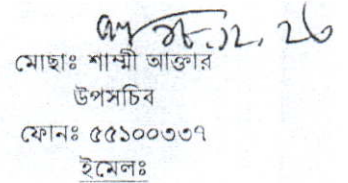 মোছাঃ শাম্মী আক্তার
উপসচিব
ফোনঃ ৫৫১০০৩৩৭
ইমেলঃ